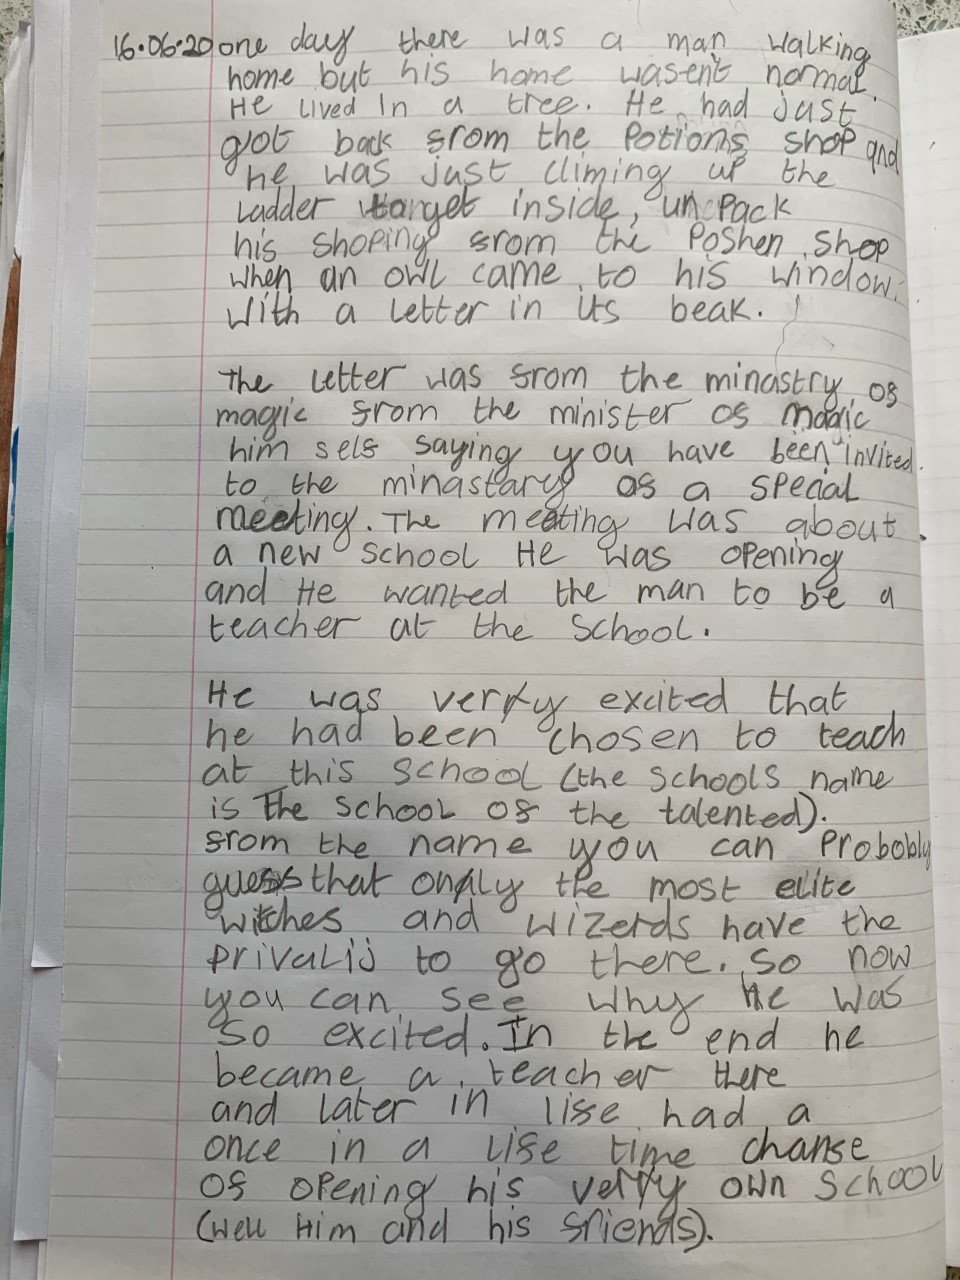 16.06.20 one day there was a man walking
home but his home wasent normal.
He lived in a tree. He had just
got back from the potions shop and
he was just climing up the
ladder to get inside, un pack
his shoping from the poshen shop
when an owl came to his window
with a letter in its beak.
The letter was from the minastry of
magic from the minister of magic
him self saying you have been invited
to the minastary of a special
meeting. The meeting was about
a new school He was opening
and He wanted the man to be a
teacher at the school.
He was very excited that
he had been chosen to teach
at this school (the schools name
is The school of the talented).
from the name you can probobly
guess that only the most elite
witches and wizerds have the
privalij to go there. so now
you can see why He was
so excited. In the end he
became a teacher there
and later in life had a
once in a life time chanse
of opening his very own school
(well Him and his friends).